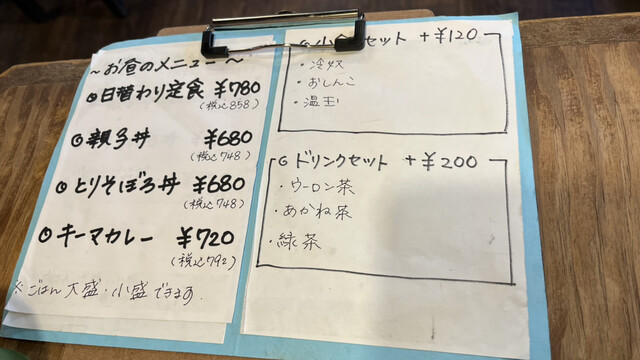 ～お昼のメニュー～
◎日替わり定食 ¥780
(税込858)
◎親子丼 ¥680
(税込748)
◎とりそぼろ丼 ¥680
(税込748)
◎キーマカレー ¥720
(税込792)
※ごはん大盛・小盛できます.
セット +¥120
・冷奴
・おしんこ
・温玉
◎ドリンクセット +¥200
・ウーロン茶
・あかね茶
・緑茶